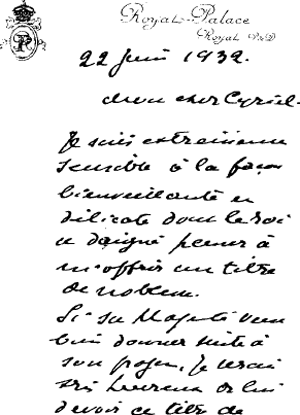 Royal-Palace
Royal
22 Juin 1932.
mon cher Cyriel.
Je suis extrêmement
sensible à la façon
bienveillante et
délicate dont le roi
a daigné penser à
m'offrir un titre
de noblesse.
Si sa Majesté veut
bien donner suite à
son projet, je serai
très heureux de lui
devoir ce titre de